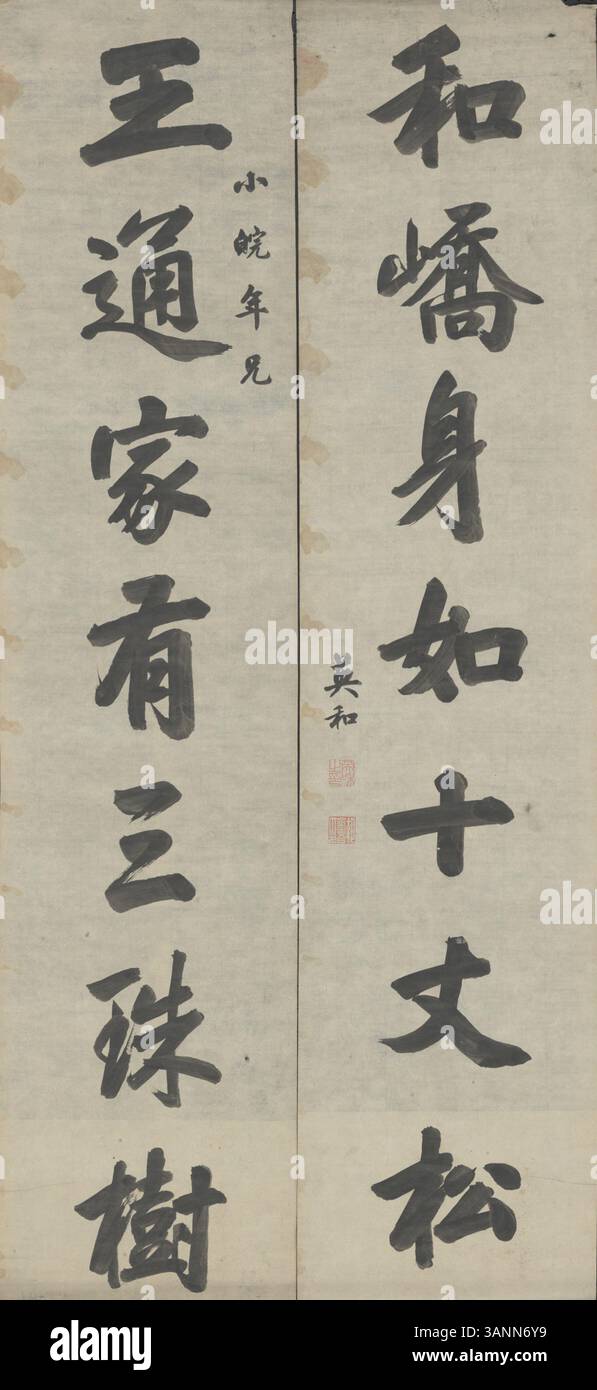 和嶠身如十丈松
英和
小皖年兄
王通家有三珠樹
alamy
Image ID: 3ANN6Y9
www.alamy.com